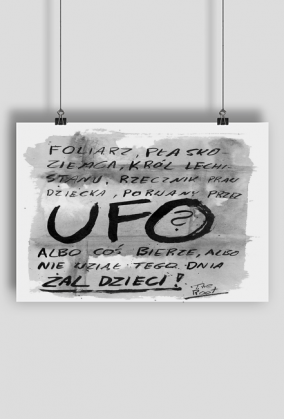 FOLIARZ, PŁASKO
ZIEJACA, KRÓL LECHI-
STANU, RZECZNIK PRAW
DZIECKA, PORWANY PRZEZ
UFO?
ALBO COŚ BIERZE, ALBO
NIE WZIĄŁ TEGO DNIA
ŻAL DZIECI!